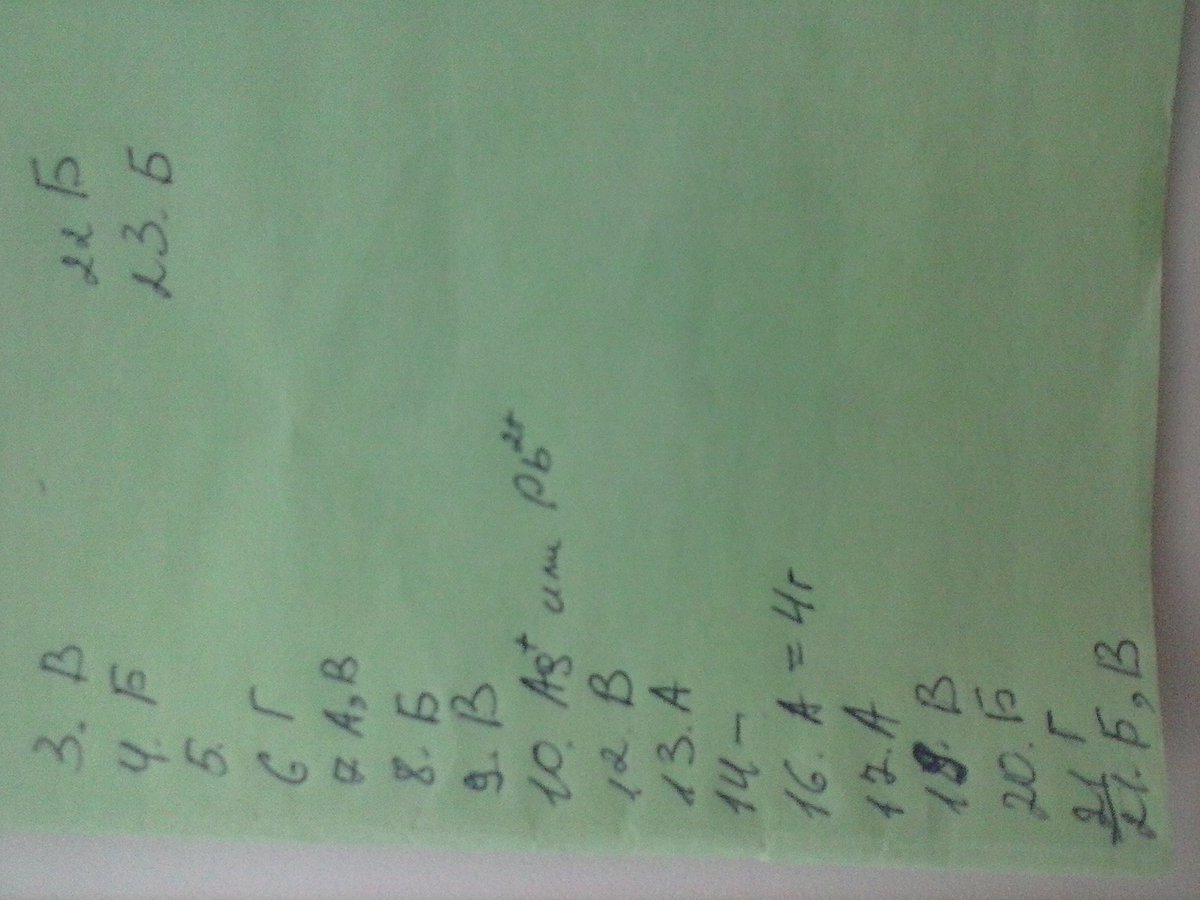 3. В
4. Б
5.
6 Г
7 А, В
8. Б
9. В
10. Ag⁺ или Pb²⁺
12. В
13. А
14 –
16. А = 4г
17. А
В
20. Б
21 Г
21. Б, В
22 Б
23. Б